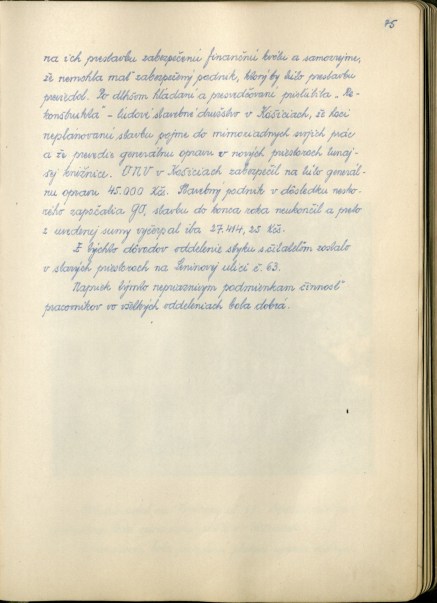 75
na ich prestavbu zabezpečenú finančnú kvótu za samozrejme,
že nemohla mať zabezpečený podnik, ktorý by túto prestavbu
previedol. Po dlhšom hľadaní a presviedčovaní prisľúbila - Re-
konštrukta - ľudové stavebné družstvo v Košiciach, že hoci
neplánovanú stavbu pojme do mimoriadnych svojich prác
a že prevedie generálnu opravu v nových priestoroch tunaj-
šej knižnice. ONV v Košiciach zabezpečil na túto generál-
nu opravu 45.000 Kčs. Stavebný podnik v dôsledku nesko-
rého započatia GO, stavbu do konca roka neukončil a preto
z uvedenej sumy vyčerpal iba 27.414,25 Kčs.
Z týchto dôvodov oddelenie styku s čitateľom zostalo
v starých priestoroch na Leninovej ulici č. 63.
Napriek týmto nepriaznivým podmienkam činnosť
pracovníkov vo všetkých oddeleniach bola dobrá.